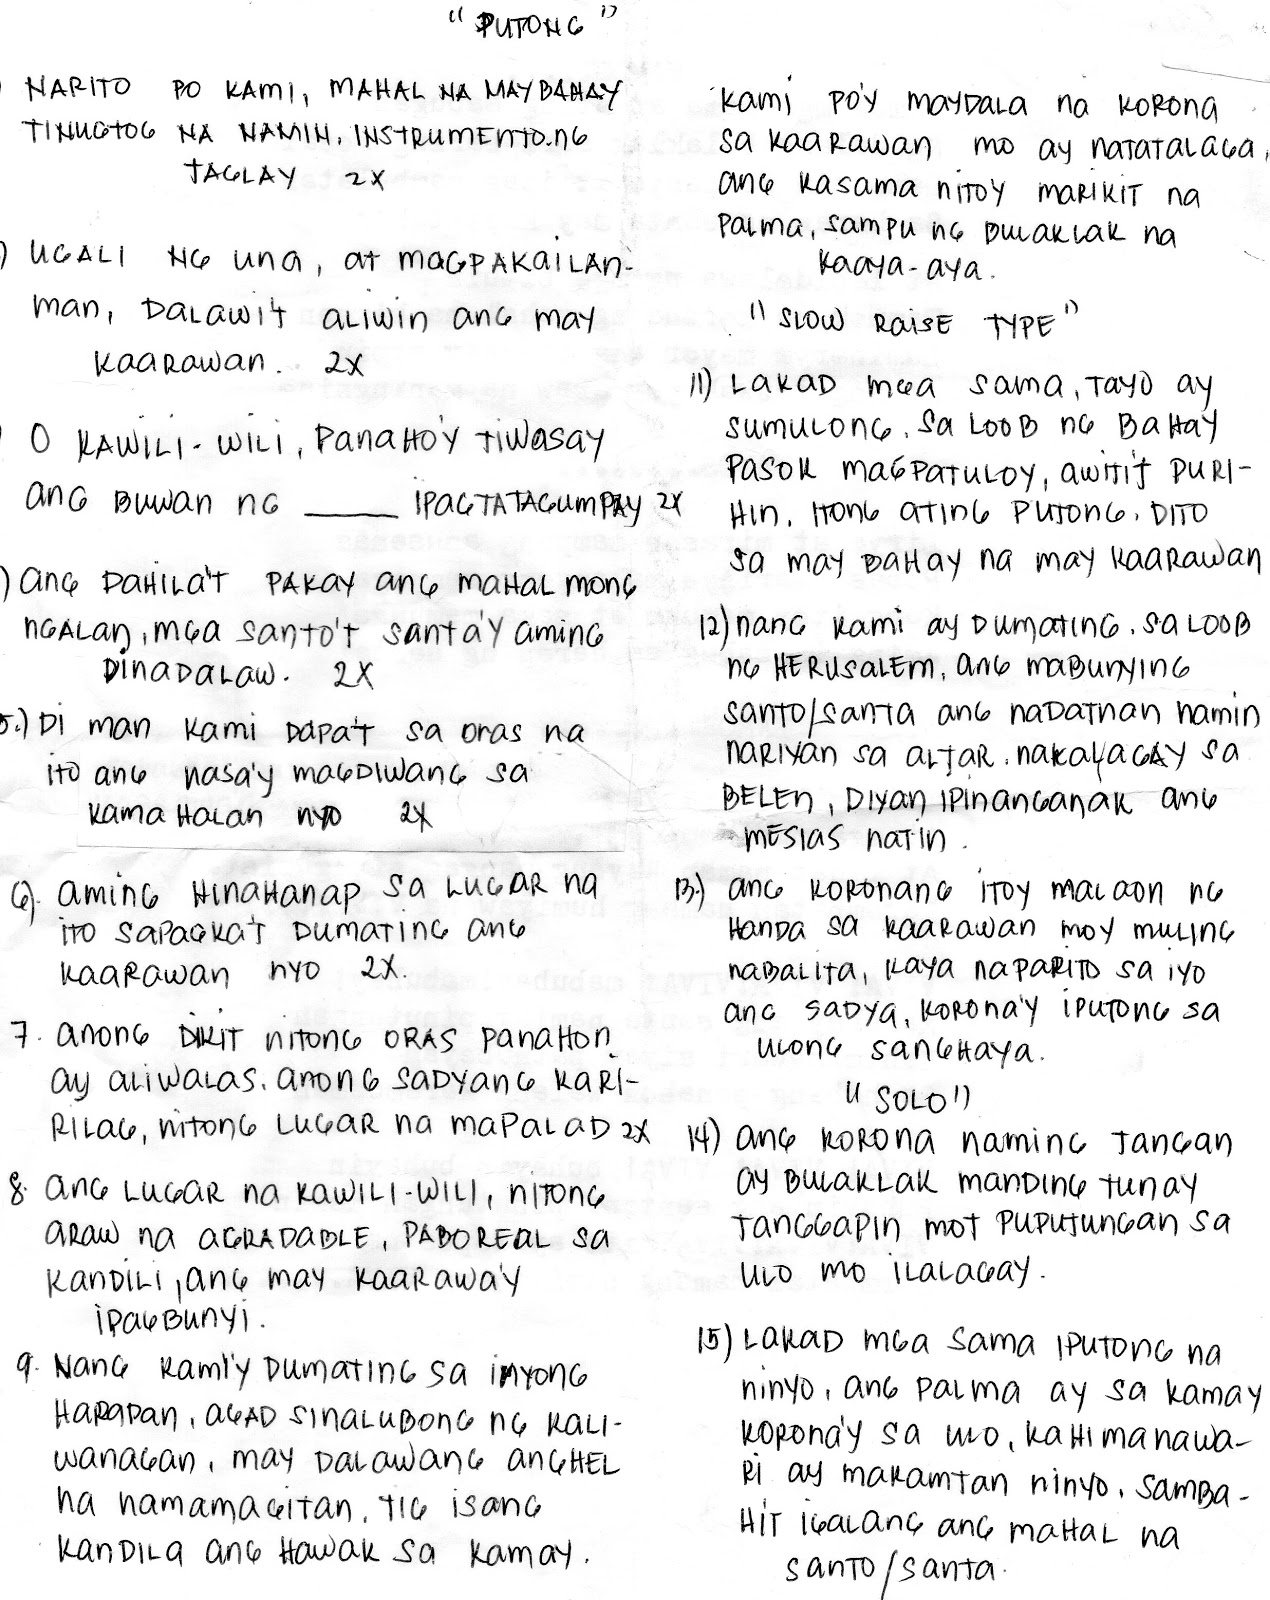 "PUTONG"
) NARITO PO KAMI, MAHAL NA MAYBAHAY
TINUGTOG NA NAMIN, INSTRUMENTO.NG
TAGLAY 2X
) UGALI NG UNA, AT MAGPAKAILAN-
MAN, DALAWI'T ALIWIN ANG MAY
KAARAWAN. 2X
) O KAWILI-WILI, PANAHO'Y TIWASAY
ANG BUWAN NG _____ IPAGTATAGUMPAY 2X
) ANG DAHILA'T PAKAY ANG MAHAL MONG
NGALAN, MGA SANTO'T SANTA'Y AMING
DINADALAW. 2X
5.) DI MAN KAMI DAPA'T SA ORAS NA
ITO ANG NASA'Y MAGDIWANG SA
KAMAHALAN NYO 2X
6). AMING HINAHANAP SA LUGAR NA
ITO SAPAGKA'T DUMATING ANG
KAARAWAN NYO 2X.
7. ANONG DIKIT NITONG ORAS PANAHON
AY ALIWALAS. ANONG SADYANG KARI-
RILAG, NITONG LUGAR NA MAPALAD 2X
8. ANG LUGAR NA KAWILI-WILI, NITONG
ARAW NA AGRADABLE, PABOREAL SA
KANDILI, ANG MAY KAARAWA'Y
IPAGBUNYI.
9. NANG KAMI'Y DUMATING SA INYONG
HARAPAN, AGAD SINALUBONG NG KALI-
WANAGAN, MAY DALAWANG ANGHEL
NA NAMAMAGITAN, TIG ISANG
KANDILA ANG HAWAK SA KAMAY.
KAMI PO'Y MAYDALA NA KORONA
SA KAARAWAN MO AY NATATALAGA,
ANG KASAMA NITOY MARIKIT NA
PALMA, SAMPU NG BULAKLAK NA
KAAYA-AYA.
"SLOW RAISE TYPE"
11) LAKAD MGA SAMA, TAYO AY
SUMULONG, SA LOOB NG BAHAY
PASOK MAGPATULOY, AWITI'T PURI-
HIN, ITONG ATING PUTONG, DITO
SA MAY BAHAY NA MAY KAARAWAN
12) NANG KAMI AY DUMATING, SA LOOB
NG HERUSALEM, ANG MABUNYING
SANTO/SANTA ANG NADATNAN NAMIN
NARIYAN SA ALTAR, NAKALAGAY SA
BELEN, DIYAN IPINANGANAK ANG
MESIAS NATIN.
13.) ANG KORONANG ITOY MALAON NG
HANDA SA KAARAWAN MOY MULING
NABALITA, KAYA NAPARITO SA IYO
ANG SADYA, KORONA'Y IPUTONG SA
ULONG SANGHAYA.
"SOLO"
14) ANG KORONA NAMING TANGAN
AY BULAKLAK MANDING TUNAY
TANGGAPIN MOT PUPUTUNGAN SA
ULO MO ILALAGAY.
15) LAKAD MGA SAMA IPUTONG NA
NINYO, ANG PALMA AY SA KAMAY
KORONA'Y SA ULO, KAHIMANAWA-
RI AY MAKAMTAN NINYO, SAMBA-
HIT IGALANG ANG MAHAL NA
SANTO/SANTA.